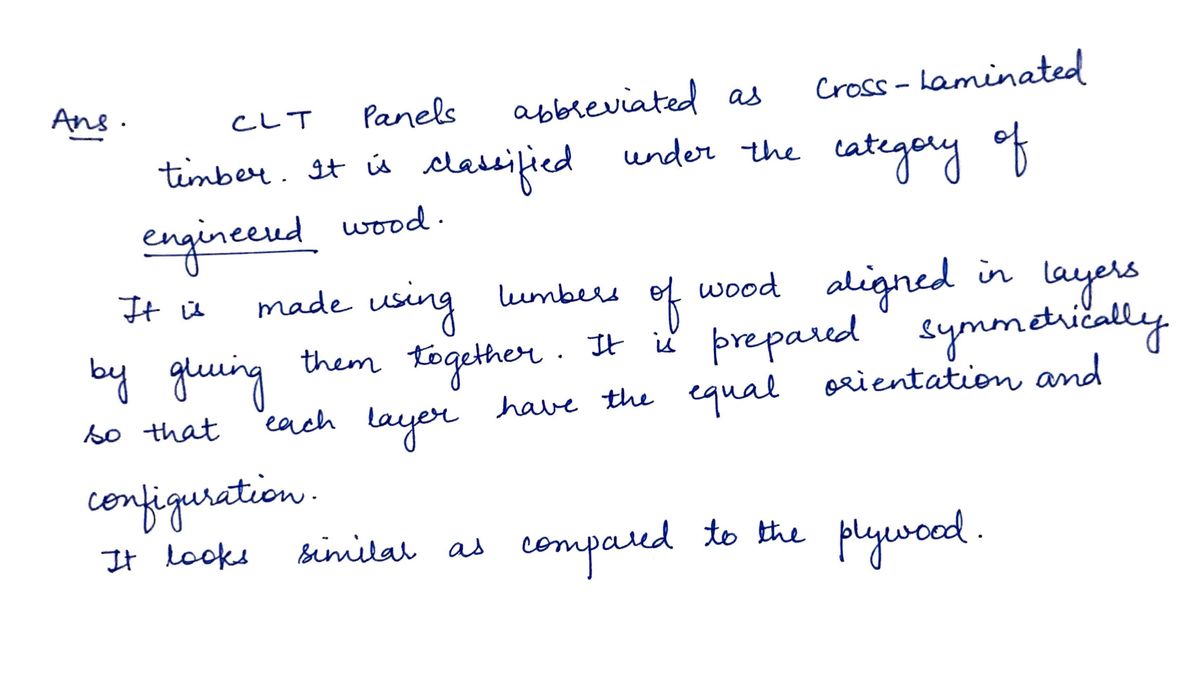 Ans. CLT Panels abbreviated as Cross-Laminated
timber. It is classified under the category of
engineered wood.
It is made using lumbers of wood aligned in layers
by gluing them together. It is prepared symmetrically
so that each layer have the equal orientation and
configuration.
It looks similar as compared to the plywood.